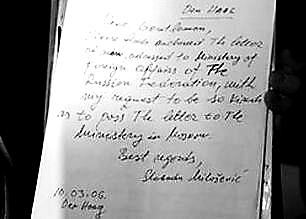 Den Haag
Dear Gentlemen,
Please find enclosed The letter
of mine adressed to Ministry of
Foreign Affairs of The
Russian Federation, with
my request to be so kind
as to pass The letter to The
Ministery in Moscow.
Best regards,
Slobodan Milošević
10.03.06.
Den Haag